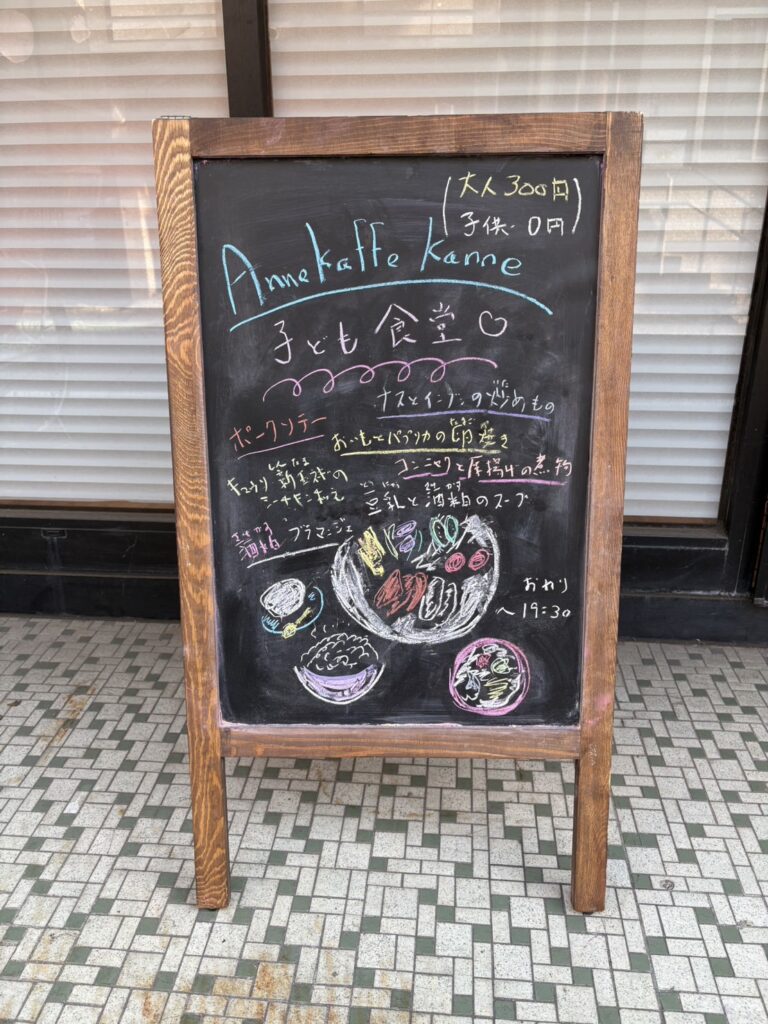 (大人 300円
子供・0円)
Annekaffe Kanne
子ども食堂♡
ナスとインゲンの炒めもの
ポークソテー
おいもとパプリカの
コンニャクと厚揚げの煮物
きゅうり 新玉ねぎの
豆乳と酒粕のスープ
とうにゅう さけかす
酒粕 ブラマンジェ
おわり
～19:30